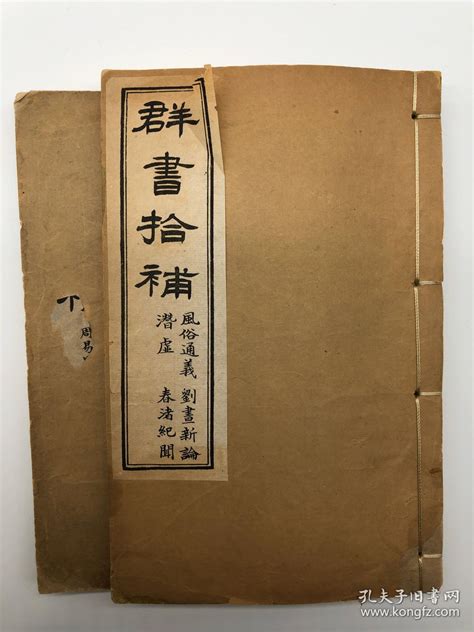 群書拾補
風俗通義 劉晝新論
潛虛 春渚紀聞
周易
孔夫子旧书网
www.kongfz.com